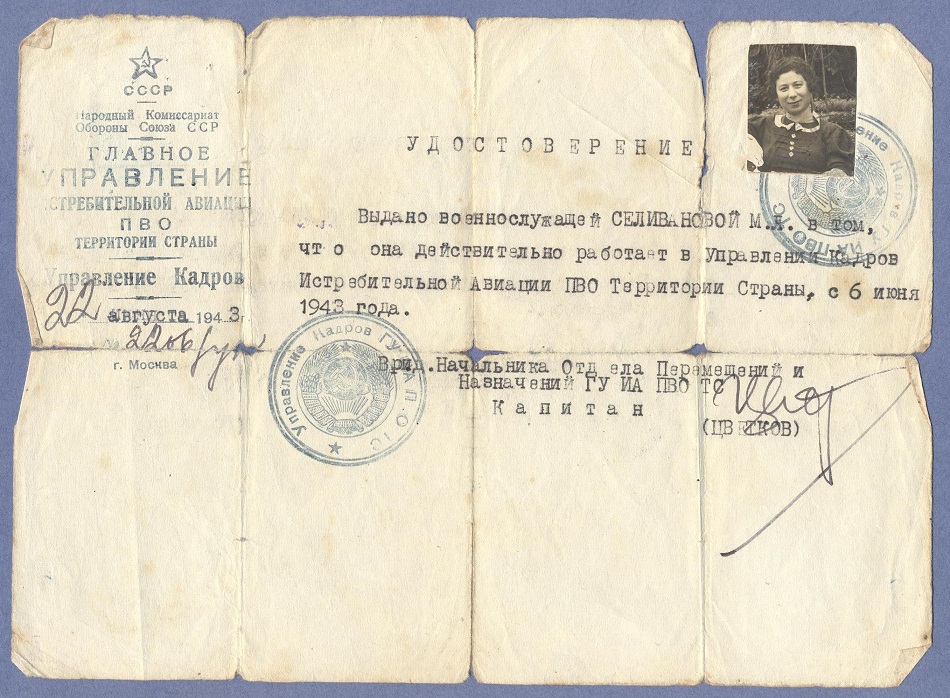 СССР
Народный Комиссариат
Обороны Союза ССР
ГЛАВНОЕ
УПРАВЛЕНИЕ
ИСТРЕБИТЕЛЬНОЙ АВИАЦИИ
ПВО
ТЕРРИТОРИИ СТРАНЫ
Управление Кадров
22 августа 1943 г.
г. Москва
УДОСТОВЕРЕНИЕ
Выдано военнослужащей СЕЛИВАНОВОЙ М.А. в том,
что она действительно работает в Управлении Кадров
Истребительной Авиации ПВО Территории Страны, с 6 июня
1943 года.
Врид.Начальника Отдела Перемещений и
Назначений ГУ ИА ПВО ТС
Капитан
(ЦВЕТКОВ)
Управление Кадров ГУ ИА П.О ТС